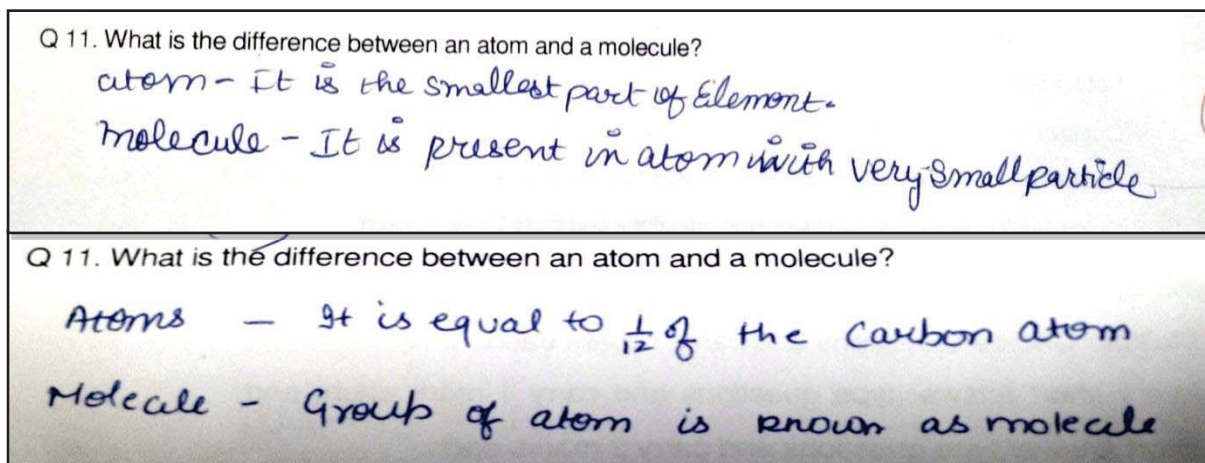 Q 11. What is the difference between an atom and a molecule?
atom - It is the smallest part of Element.
molecule - It is present in atom with very small particle
Q 11. What is the difference between an atom and a molecule?
Atoms - It is equal to 1/12 of the Carbon atom
Molecule - Group of atom is known as molecule